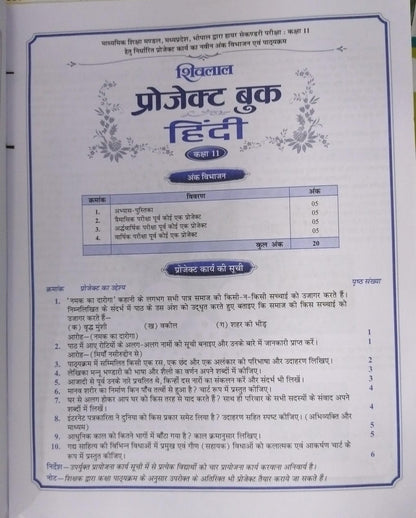 माध्यमिक शिक्षा मण्डल, मध्यप्रदेश, भोपाल द्वारा हायर सेकण्डरी परीक्षा : कक्षा 11
हेतु निर्धारित प्रोजेक्ट कार्य का नवीन अंक विभाजन एवं पाठ्यक्रम
शिवलाल
प्रोजेक्ट बुक
हिंदी
कक्षा 11
अंक विभाजन
क्रमांक विवरण अंक
1. अभ्यास-पुस्तिका 05
2. त्रैमासिक परीक्षा पूर्व कोई एक प्रोजेक्ट 05
3. अर्द्धवार्षिक परीक्षा पूर्व कोई एक प्रोजेक्ट 05
4. वार्षिक परीक्षा पूर्व कोई एक प्रोजेक्ट 05
कुल अंक 20
प्रोजेक्ट कार्य की सूची
क्रमांक प्रोजेक्ट का उद्देश्य पृष्ठ संख्या
1. 'नमक का दारोगा' कहानी के लगभग सभी पात्र समाज की किसी-न-किसी सच्चाई को उजागर करते हैं।
निम्नलिखित के संदर्भ में पाठ के उस अंश को उद्धृत करते हुए बताइए कि समाज की किस सच्चाई को
उजागर करते हैं—
(क) वृद्ध मुंशी (ख) वकील (ग) शहर की भीड़
आरोह—(नमक का दारोगा) 1
2. पाठ में आए रोटियों के अलग-अलग नामों की सूची बनाइए और उनके बारे में जानकारी प्राप्त करें।
आरोह—(मियाँ नसीरुद्दीन से) 1
3. पाठ्यक्रम में सम्मिलित किसी एक रस, एक छंद और एक अलंकार की परिभाषा और उदाहरण लिखिए। 2
4. लेखिका मन्नू भण्डारी की भाषा और शैली का वर्णन अपने शब्दों में कीजिए। 3
5. आजादी से पूर्व उनके नारे प्रचलित थे, किन्हीं दस नारों का संकलन करें और संदर्भ भी लिखें। 3
6. मानव शरीर का निर्माण किन पाँच तत्वों से हुआ है? चार्ट रूप में प्रस्तुत कीजिए। 4
7. घर से अलग होकर आप घर को किस तरह से याद करते हैं? साथ ही परिवार के सभी सदस्यों के संवाद अपने
शब्दों में लिखें। 4
8. इंटरनेट पत्रकारिता ने दुनिया को किस प्रकार समेट लिया है? उदाहरण सहित स्पष्ट कीजिए। (अभिव्यक्ति और
माध्यम) 5
9. आधुनिक काल को कितने भागों में बाँटा गया है? काल क्रमानुसार लिखिए। 5
10. गद्य साहित्य की विभिन्न विधाओं में प्रमुख एवं गौण (सहायक) विधाओं को कलात्मक एवं आकर्षण चार्ट के
रूप में प्रस्तुत कीजिए। 6
निर्देश— उपर्युक्त प्रायोजना कार्य सूची में से प्रत्येक विद्यार्थी को चार प्रायोजना कार्य करवाना अनिवार्य है।
नोट— शिक्षक द्वारा कक्षा पाठ्यक्रम के अनुसार उपरोक्त के अतिरिक्त भी प्रोजेक्ट तैयार कराये जा सकते हैं।